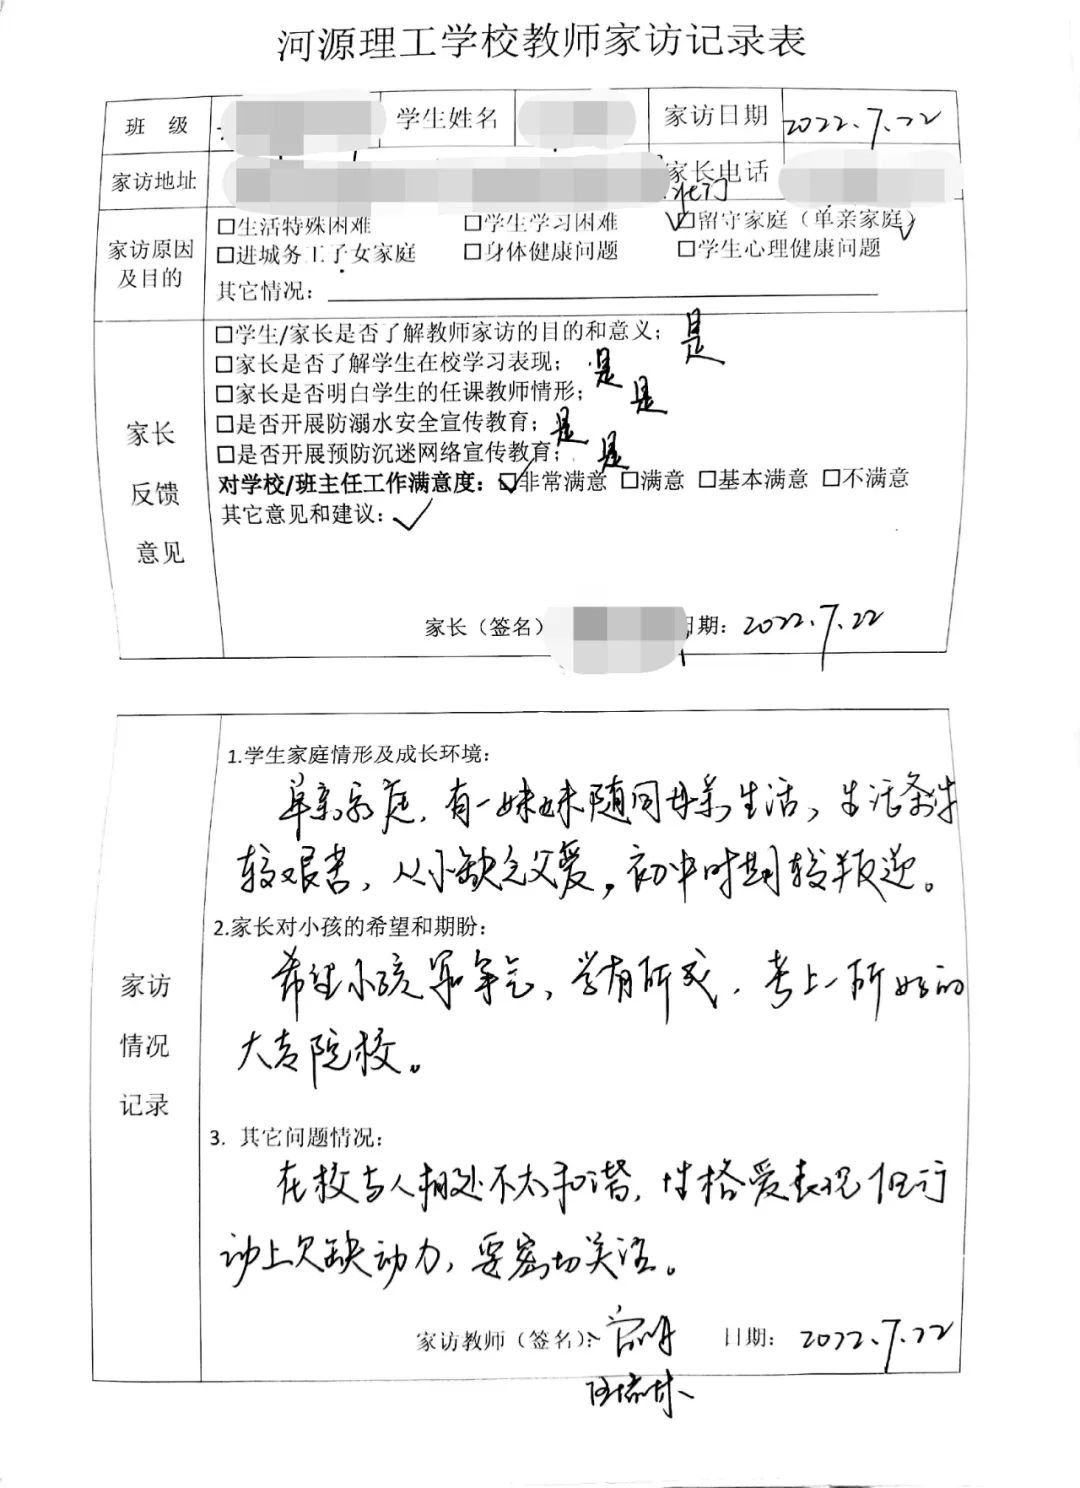 河源理工学校教师家访记录表
班 级 学生姓名 家访日期 2022.7.22
家访地址 家长电话
家访原因及目的
□生活特殊困难 □学生学习困难 ☑留守家庭（单亲家庭）✓
□进城务工子女家庭 □身体健康问题 □学生心理健康问题
其它情况：
家长反馈意见
□学生/家长是否了解教师家访的目的和意义； 是
□家长是否了解学生在校学习表现； 是
□家长是否明白学生的任课教师情形； 是
□是否开展防溺水安全宣传教育； 是
□是否开展预防沉迷网络宣传教育； 是
对学校/班主任工作满意度：☑非常满意 □满意 □基本满意 □不满意
其它意见和建议：✓
家长（签名） 日期：2022.7.22
家访情况记录
1.学生家庭情形及成长环境：
单亲家庭，有一妹妹随同母亲生活，生活条件
较艰苦，从小缺乏父爱，初中时期较叛逆。
2.家长对小孩的希望和期盼：
希望小孩 争气，学有所成，考上一所好的
大专院校。
3. 其它问题情况：
在校与人相处不太和谐，性格爱表现但行
动上欠缺动力，要密切关注。
家访教师（签名）： 日期：2022.7.22